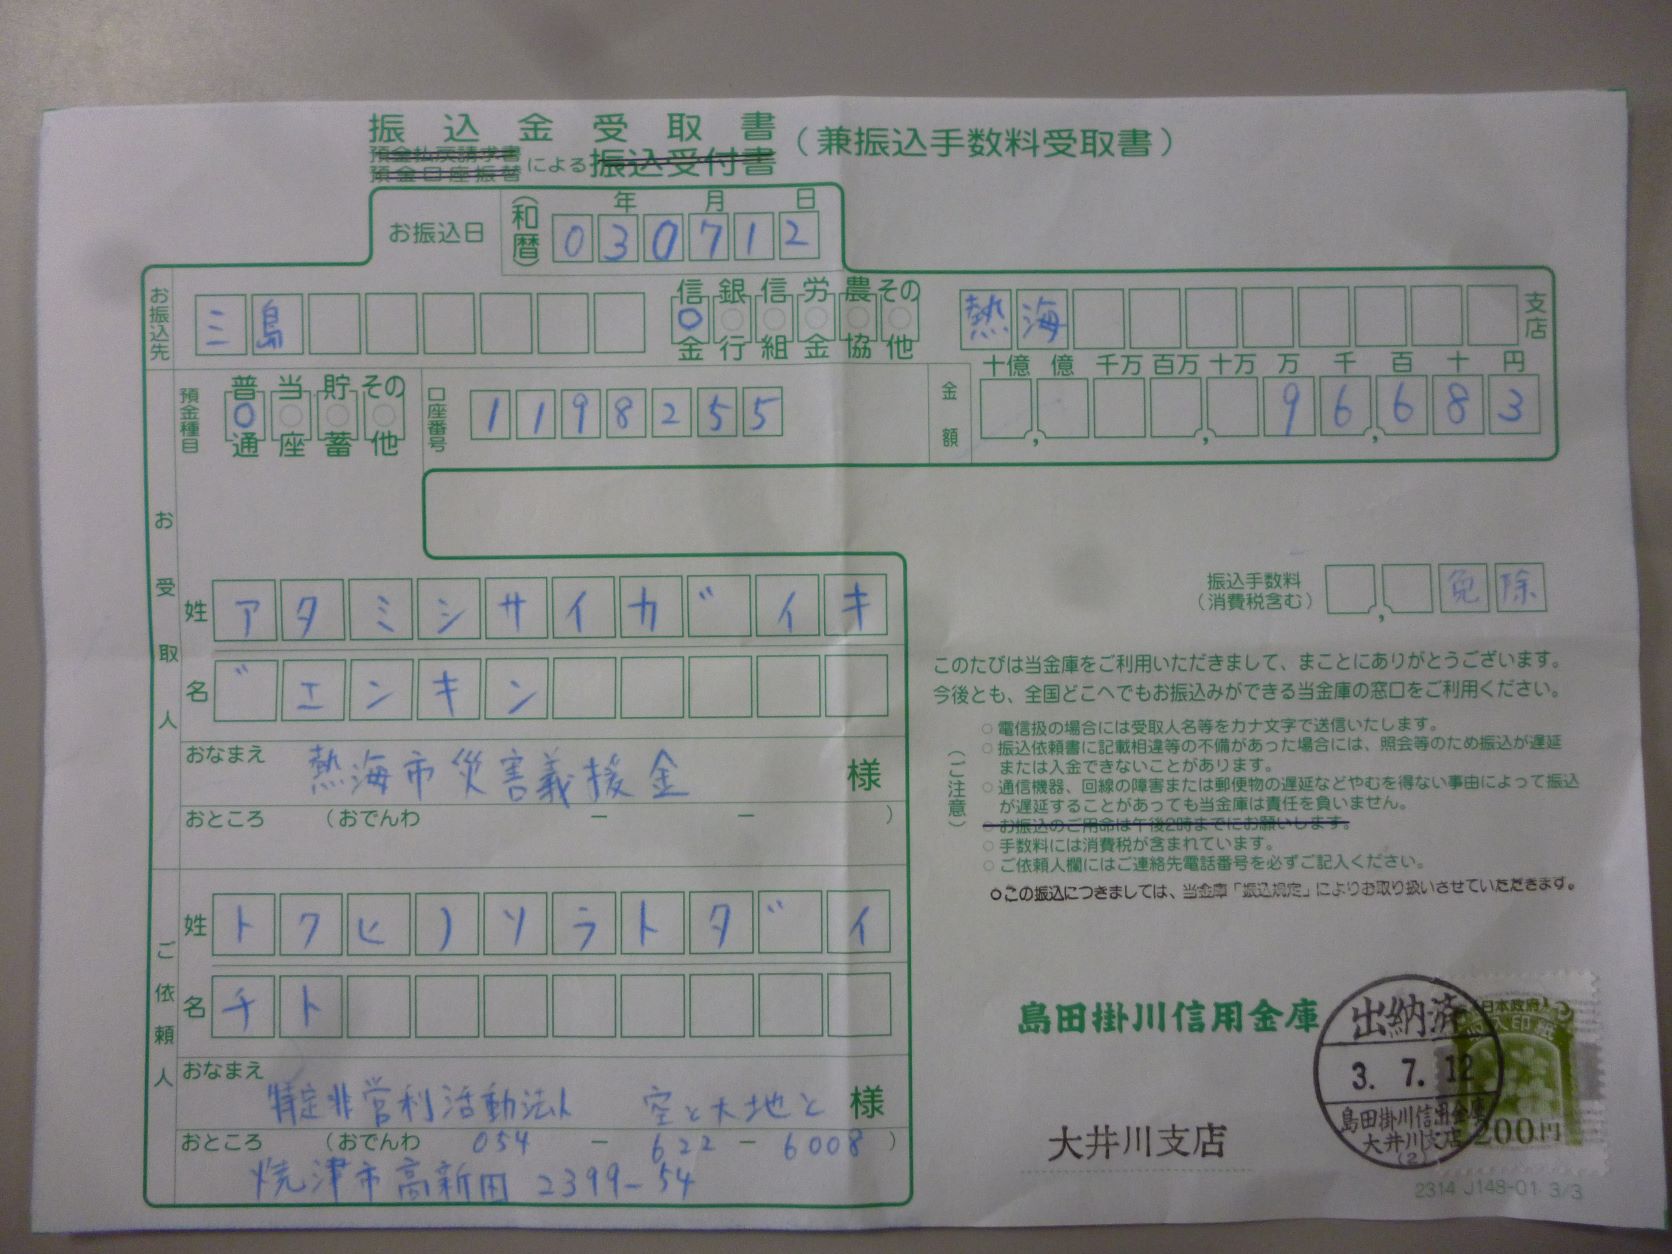 振込金受取書(兼振込手数料受取書)
預金払戻請求書
預金口座振替
による振込受付書
お振込日 (和暦) 年 月 日
030712
お振込先 三島 信金 銀行 信組 労金 農協 その他 熱海 支店
預金種目 普通 当座 貯蓄 その他 口座番号 1198255
金額 十億 億 千万 百万 十万 万 千 百 十 円
96683
お受取人
姓 アタミシサイガ゛イキ
名 ゛エンキン
おなまえ 熱海市災害義援金 様
おところ (おでんわ - - )
振込手数料
(消費税含む) 免除
このたびは当金庫をご利用いただきまして、まことにありがとうございます。
今後とも、全国どこへでもお振込みができる当金庫の窓口をご利用ください。
(ご注意)
○電信扱の場合には受取人名等をカナ文字で送信いたします。
○振込依頼書に記載相違等の不備があった場合には、照会等のため振込が遅延
または入金できないことがあります。
○通信機器、回線の障害または郵便物の遅延などやむを得ない事由によって振込
が遅延することがあっても当金庫は責任を負いません。
○お振込のご用命は午後2時までにお願いします。
○手数料には消費税が含まれています。
○ご依頼人欄にはご連絡先電話番号を必ずご記入ください。
○この振込につきましては、当金庫「振込規定」によりお取り扱いさせていただきます。
ご依頼人
姓 トクヒ)ソラトダ゛イ
名 チト
おなまえ 特定非営利活動法人 空と大地と 様
おところ (おでんわ 054 - 622 - 6008 )
焼津市高新田 2399-54
島田掛川信用金庫
大井川支店
出納済
3. 7. 12
島田掛川信用金庫
大井川支店
(2)
日本政府
収入印紙
200円
2314 J148-01 3/3